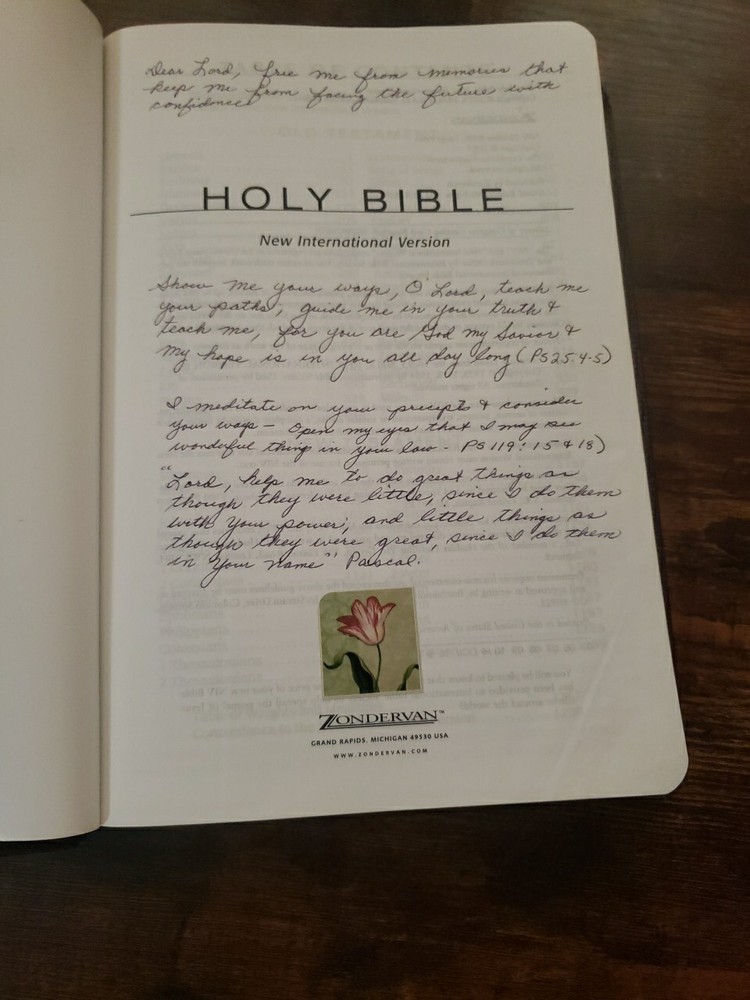 Dear Lord, free me from memories that
keep me from facing the future with
confidence
HOLY BIBLE
New International Version
Show me your ways, O Lord, teach me
your paths; guide me in your truth &
teach me, for you are God my Savior &
my hope is in you all day long (PS 25 4-5)
I meditate on your precepts & consider
your ways - Open my eyes that I may see
wonderful thing in your law - PS 119: 15 & 18)
"Lord, help me to do great things as
though they were little, since I do them
with your power; and little things as
though they were great, since I do them
in Your name" Pascal.
ZONDERVAN™
GRAND RAPIDS, MICHIGAN 49530 USA
WWW.ZONDERVAN.COM